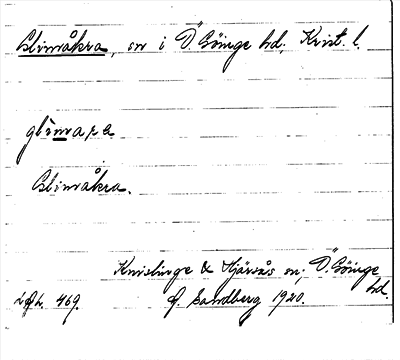 Glimåkra, sn i Ö. Göinge hd, Krist. l.
glimara
Glimåkra.
Knislinge & Hjärsås sn; Ö. Göinge
hd.
469. Sandberg 1920.